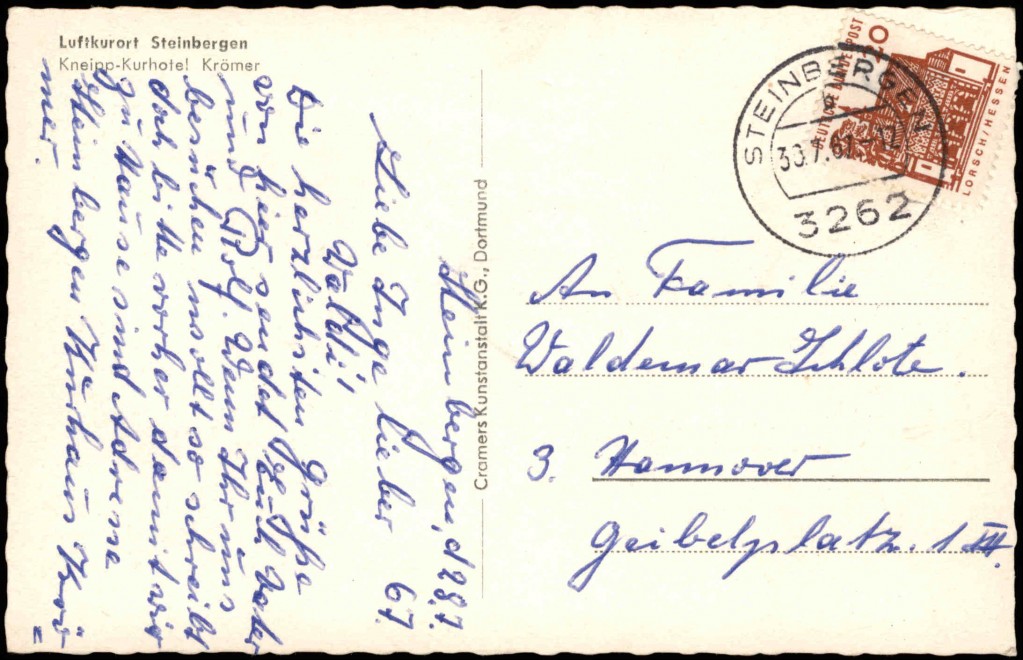 Luftkurort Steinbergen
Kneipp-Kurhotel Krömer
Steinbergen, d 28.7.
67.
Liebe Inge lieber
Waldi!
Die herzlichsten Grüße
von hier sendet Euch Vater
und Rolf. Wenn Ihr uns
besuchen wollt so schreibt
doch bitte vorher damit wir
zu Hause sind Adresse
Steinbergen Kurhaus Krö
mer.
Cramers Kunstanstalt K.G., Dortmund
DEUTSCHE BUNDESPOST
20
LORSCH/HESSEN
STEINBERGEN
30.7.67-12
3262
An Familie
Waldemar Schlote.
3. Hannover
Geibelplatz. 1 III.